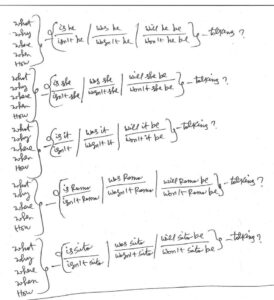 What
Why is he | was he | will he be
Where isn't he | wasn't he | won't he be - talking ?
When
How
What
Why is she | was she | will she be - talking ?
Where isn't she | wasn't she | won't she be
When
How
What
Why is it | was it | will it be - talking ?
Where isn't | wasn't it | won't it be
When
How
What
Why is Rama | was Rama | will Rama be - talking ?
Where isn't Rama | wasn't Rama | won't Rama be
When
How
What
Why is Sita | was Sita | will Sita be - talking ?
Where isn't Sita | wasn't Sita | won't Sita be
When
How